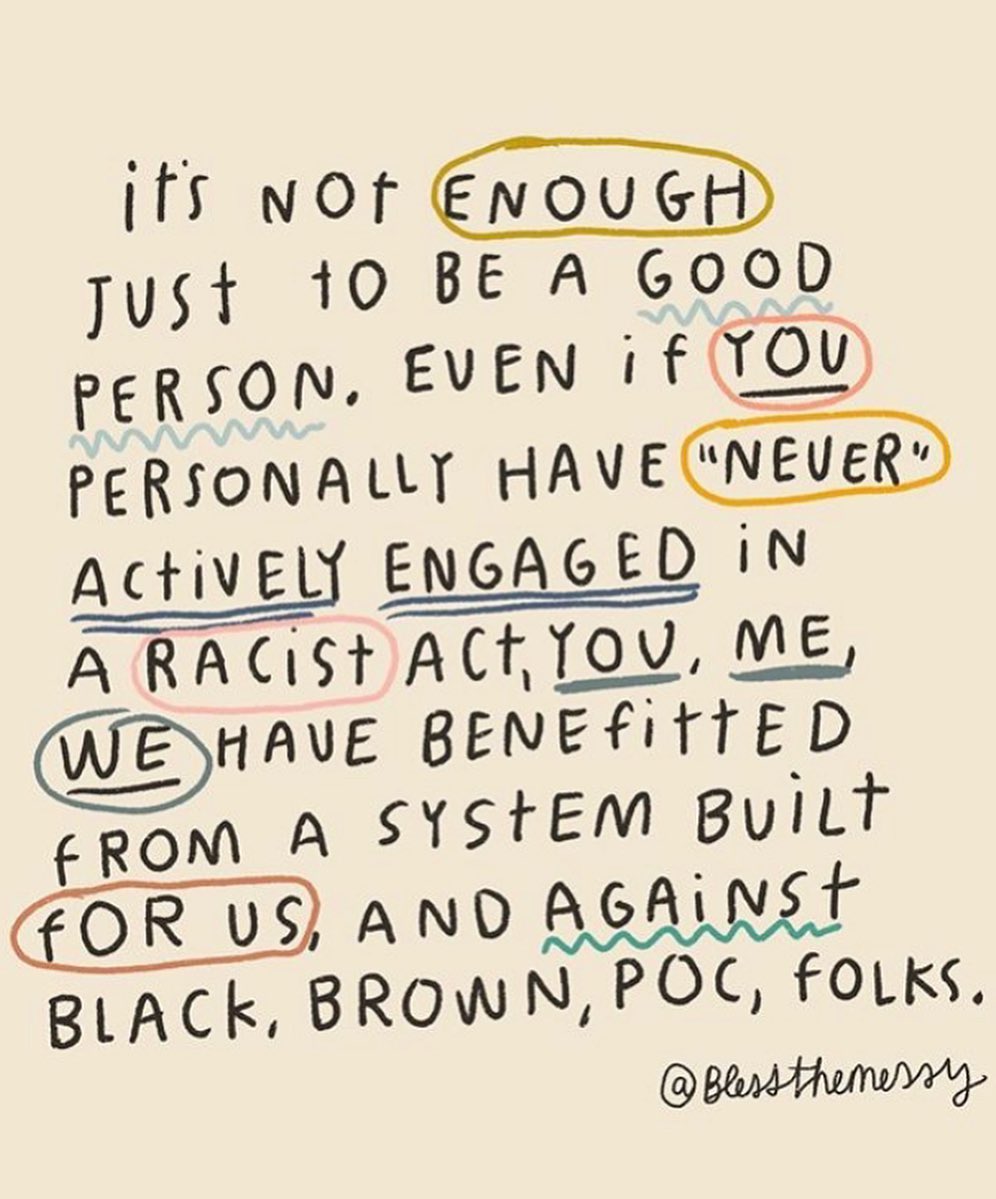 it's NOt ENOUGH
JUSt tO BE A GOOD
PERSON. EVEN if YOU
PERSONALLY HAVE "NEVER"
ACtiVELY ENGAGED iN
A RACiSt ACt, YOU, ME,
WE HAVE BENEfittED
fROM A SYStEM BUiLt
fOR US, AND AGAiNSt
BLACK, BROWN, POC, fOLKS.
@Blessthemessy